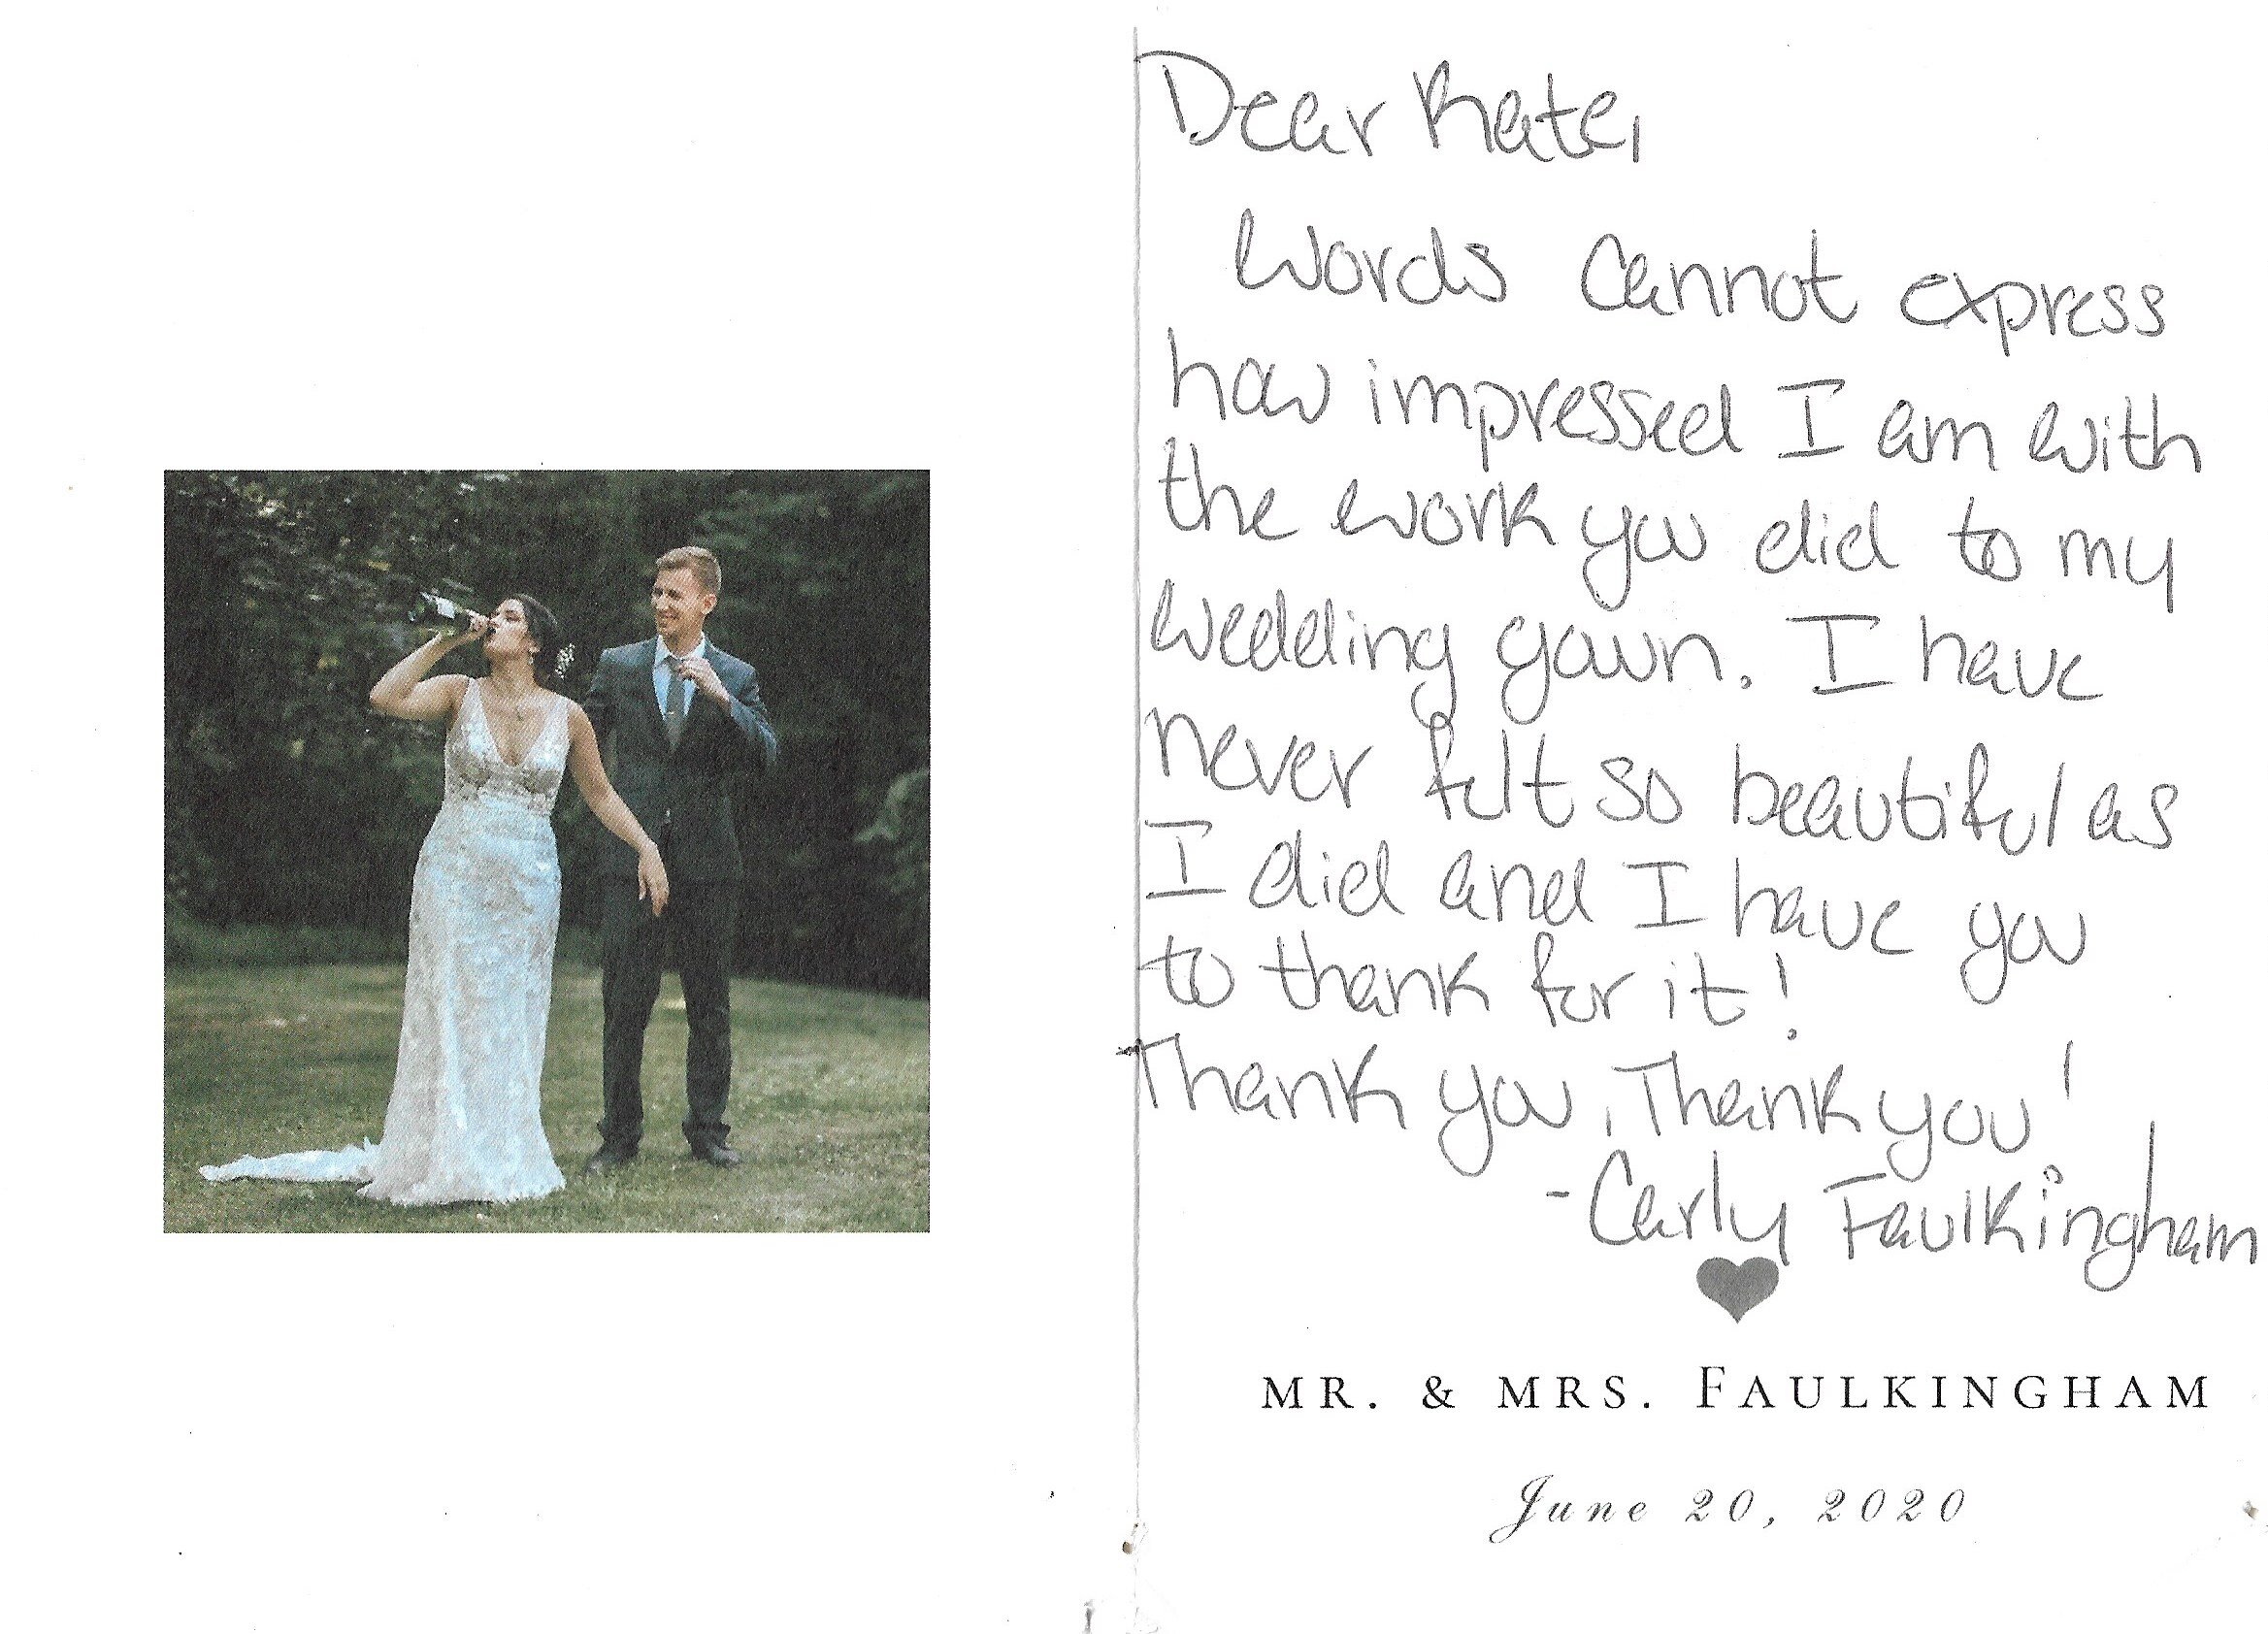 Dear Kate,
Words cannot express
how impressed I am with
the work you did to my
wedding gown. I have
never felt so beautiful as
I did and I have you
to thank for it!
Thank you, Thank you!
-Carly Faulkingham
MR. & MRS. FAULKINGHAM
June 20, 2020